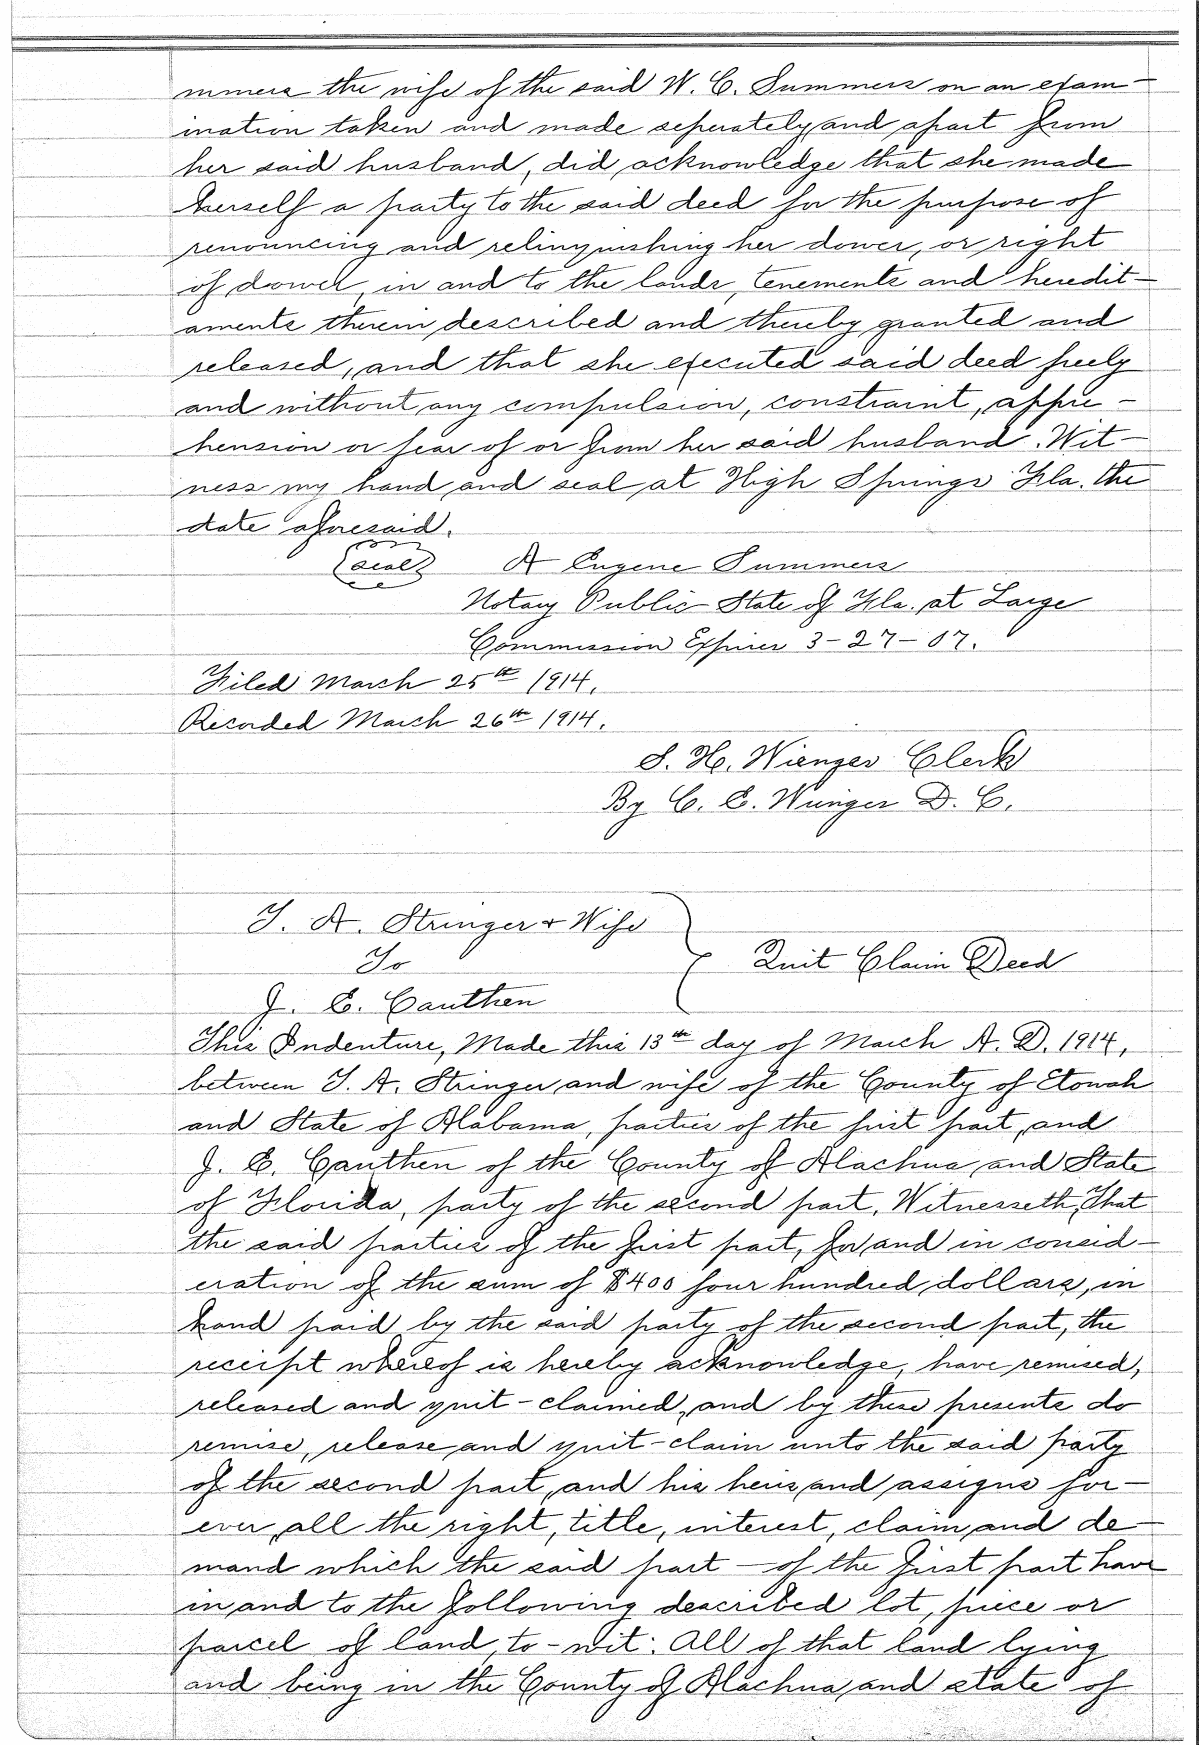 mmers the wife of the said W. C. Summers on an exam-
ination taken and made seperately, and apart from
her said husband, did acknowledge that she made
herself a party to the said deed for the purpose of
renouncing and relinquishing her dower, or right
of dower, in and to the lands, tenements and heredit-
aments therein, described and thereby granted and
released, and that she executed said deed freely
and without any compulsion, constraint, appre-
hension or fear of or from her said husband. Wit-
ness my hand, and seal at High Springs Fla. the
date aforesaid.
(seal) A Eugene Summers
Notary Public State of Fla. at Large
Commission Expires 3-27-07.
Filed March 25th 1914.
Recorded March 26th 1914.
S. H. Wienges Clerk
By C. E. Wienges D. C.
T. A. Stringer + Wife
To
Quit Claim Deed
J. E. Cauthen
This Indenture, Made this 13th day of March A. D. 1914,
between T. A. Stringer, and wife of the County of Etowah
and State of Alabama, parties of the first part, and
J. E. Cauthen of the County of Alachua, and State
of Florida, party of the second part, Witnesseth, That
the said parties of the first part, for, and in consid-
eration of the sum of $400 four hundred dollars, in
hand paid by the said party of the second part, the
receipt whereof is hereby acknowledge, have remised,
released and quit-claimed, and by these presents do
remise, release, and quit-claim unto the said party
of the second part, and his heirs, and assigns for-
ever, all the right, title, interest, claim, and de-
mand which the said part — of the first part have
in, and to the following described lot, piece or
parcel of land, to-wit: All of that land lying
and being in the County of Alachua, and state of